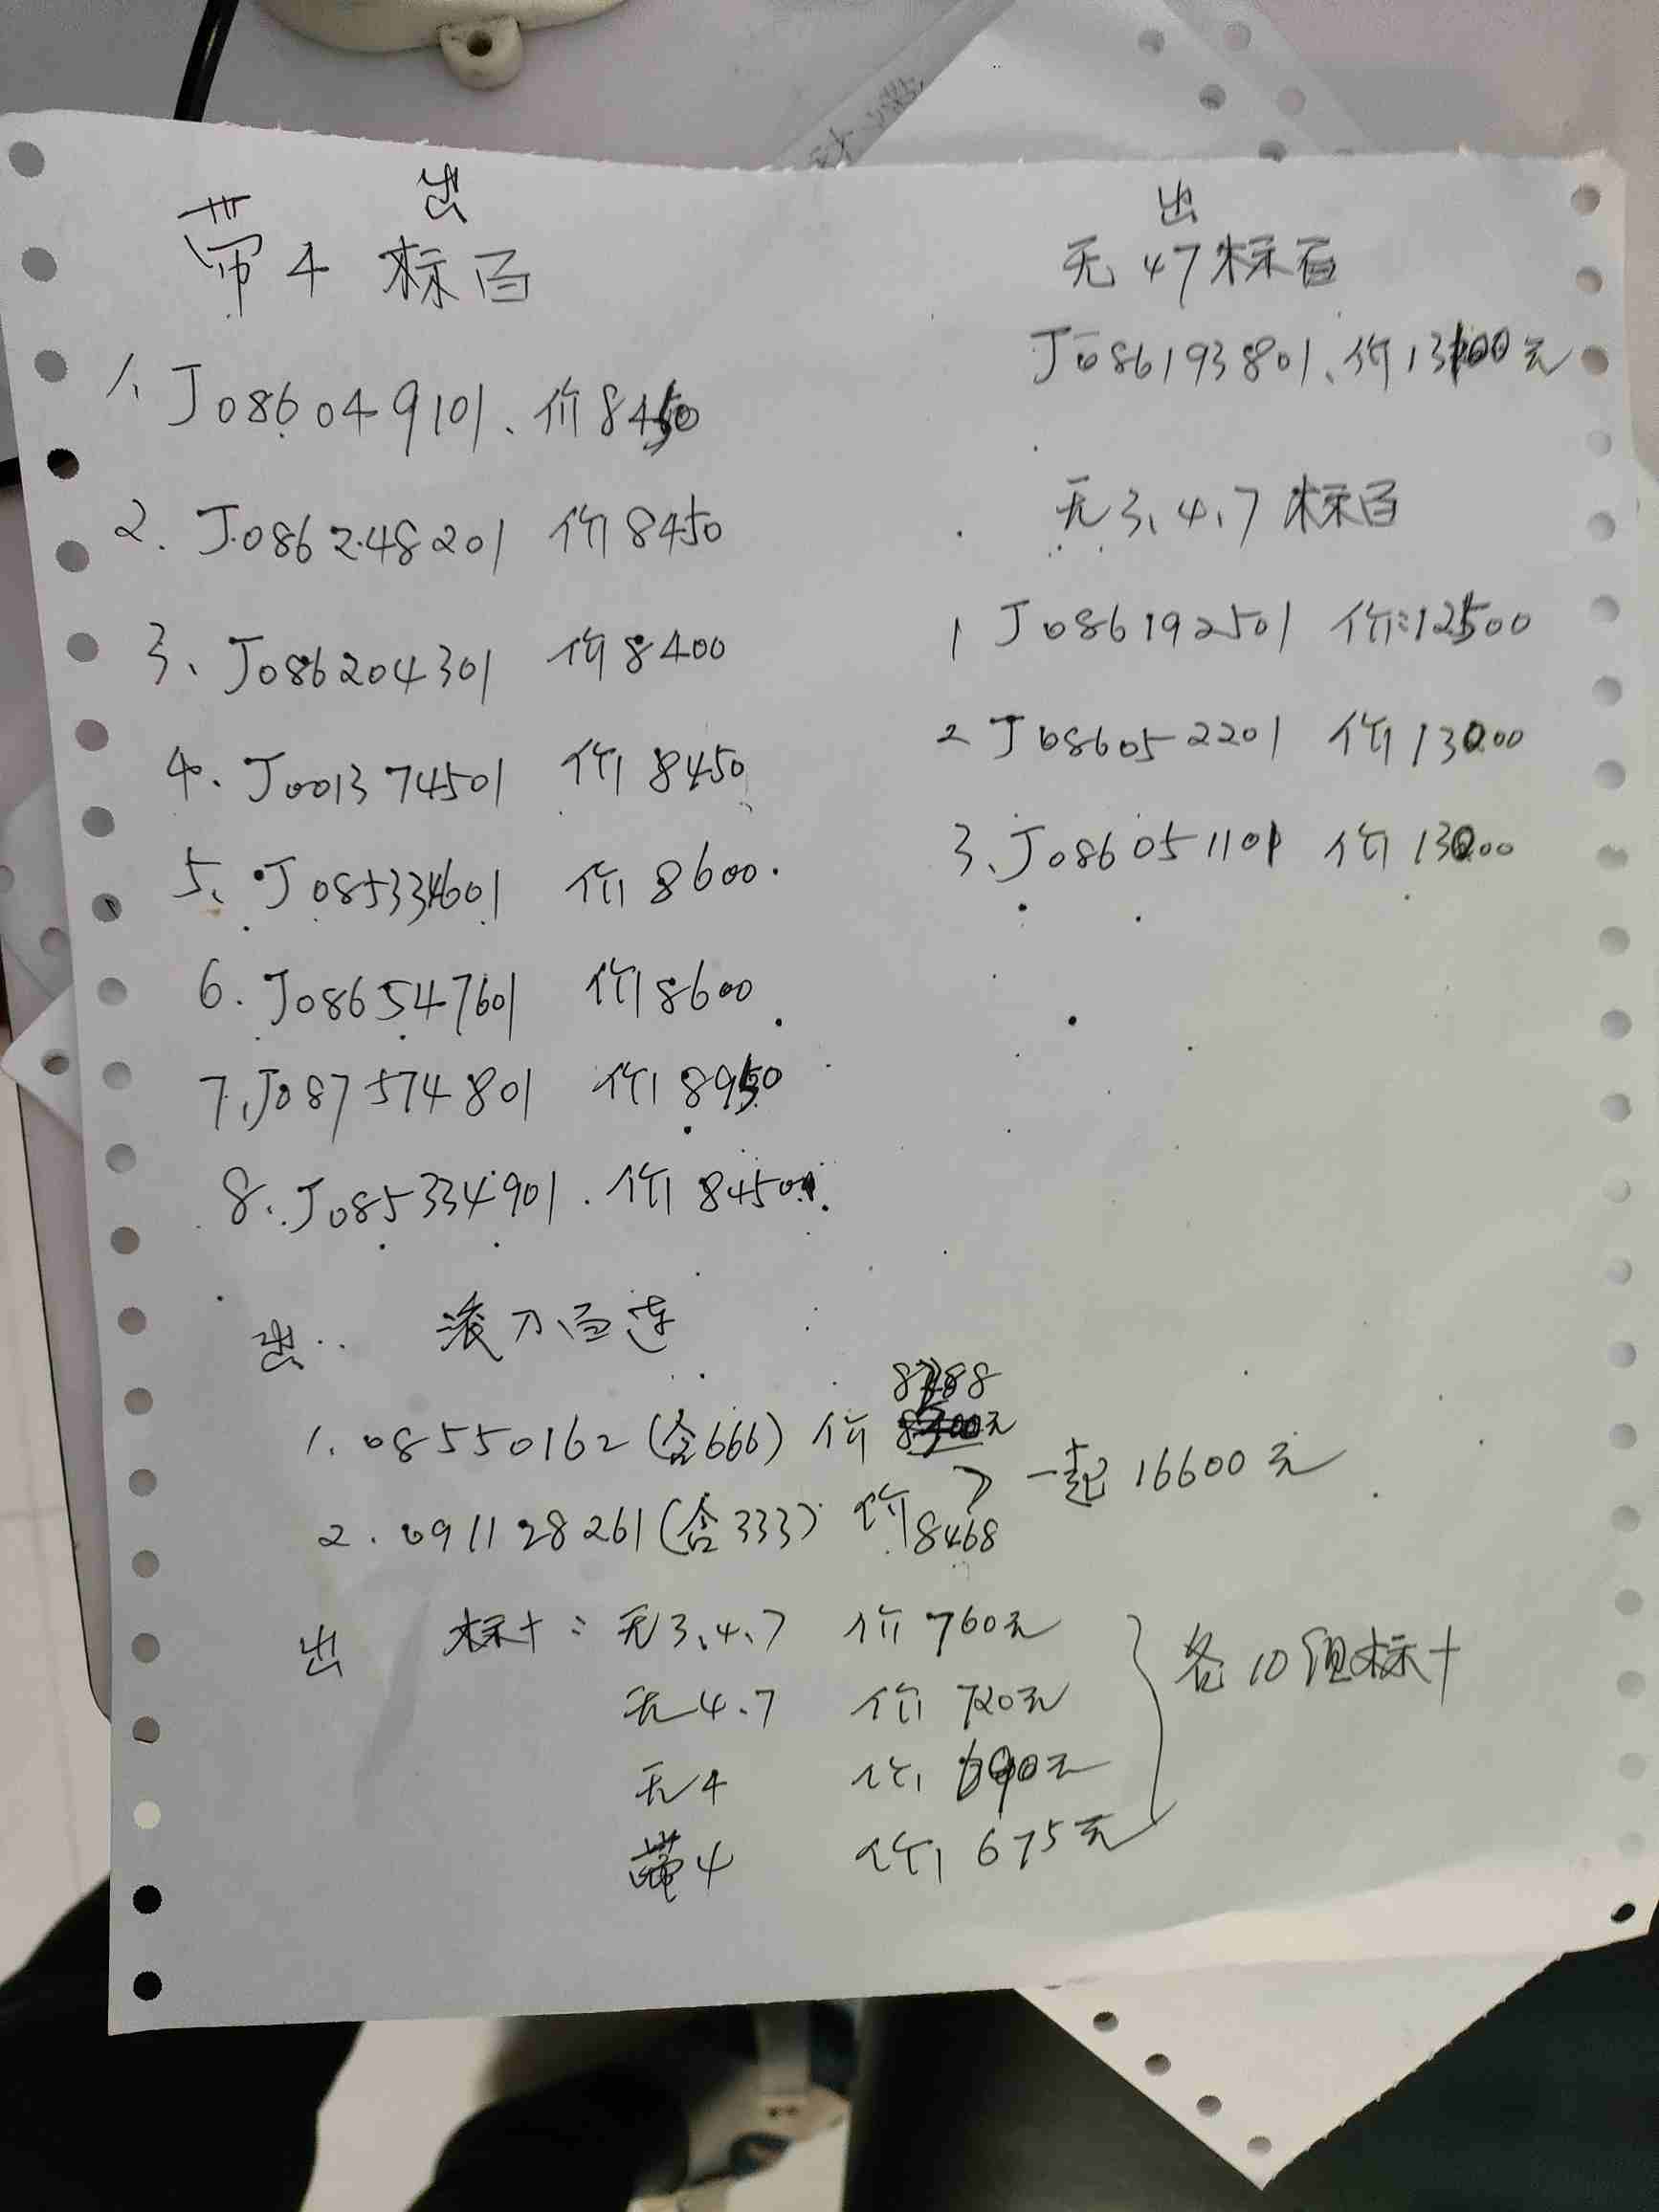 出
带4 标百
1、J086049101、价8450
2、J086248201 价8450
3、J086204301 价8400
4、J001374501 价8450
5、J085334601 价8600
6、J086547601 价8600
7、J087574801 价8950
8、J085334901、价8450
出
无47标百
J086193801、价13100元
无3、4、7标百
1 J086192501 价:12500
2 J086052201 价13000
3、J086051101 价13000
出 滚刀百连
1、08550162(含666) 价
2、091128261(含333) 价8468
一起16600元
出 标十:无3、4、7 价760元
无4、7 价720元
无4 价690元
带4 价675元
各10组标十